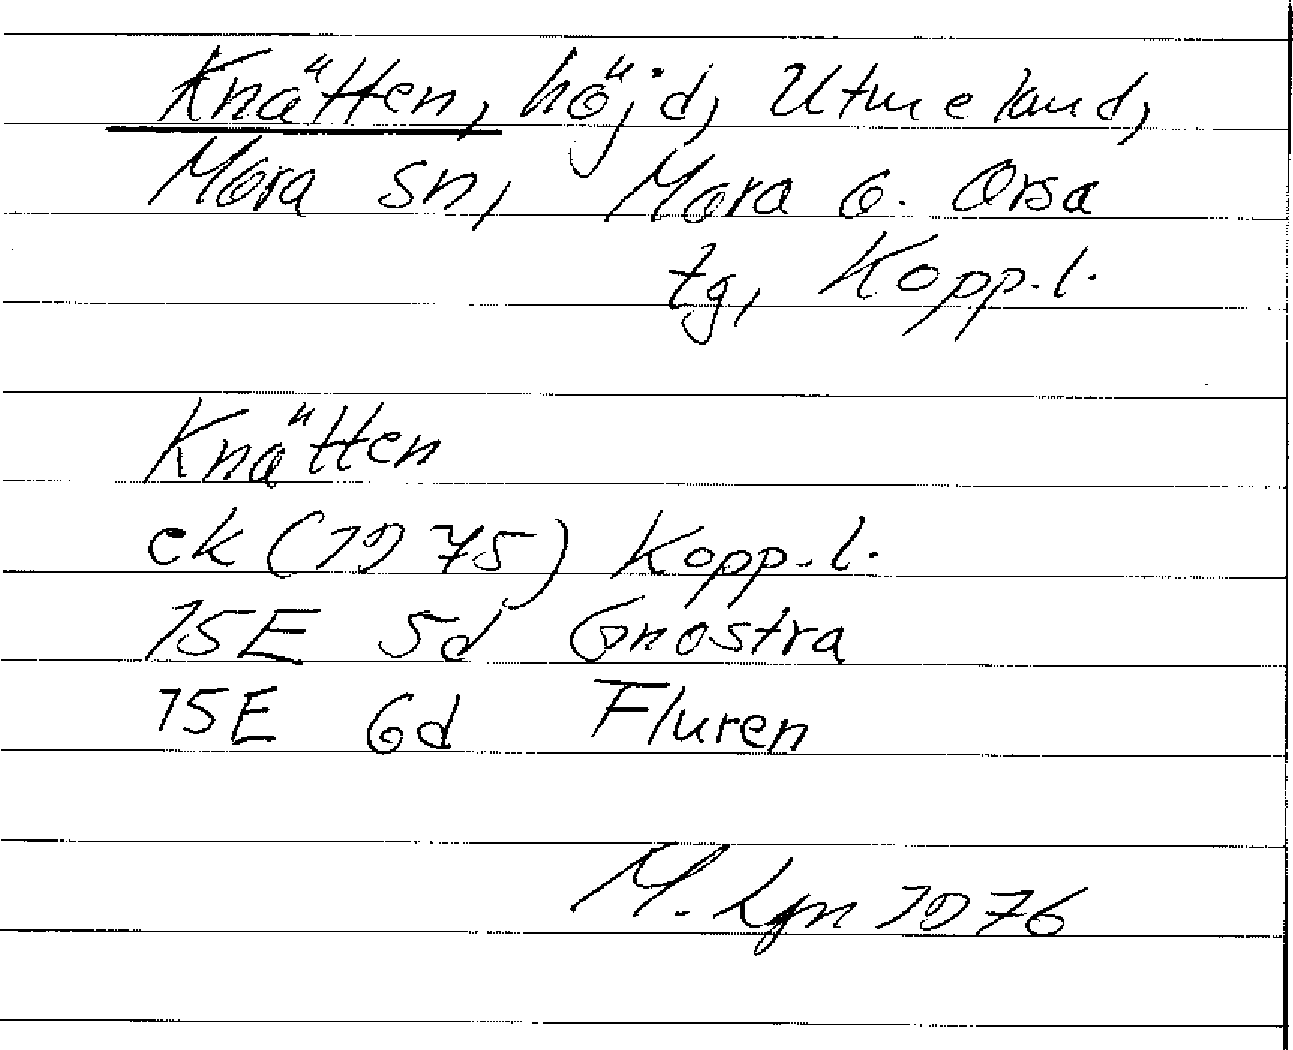 Knätten, höjd, Utmeland,
Mora sn, Mora o. Orsa
tg, Kopp.l.
Knätten
ek (1975) Kopp.l.
15E 5d Gnostra
15E 6d Fluren
M. Lgn 1976